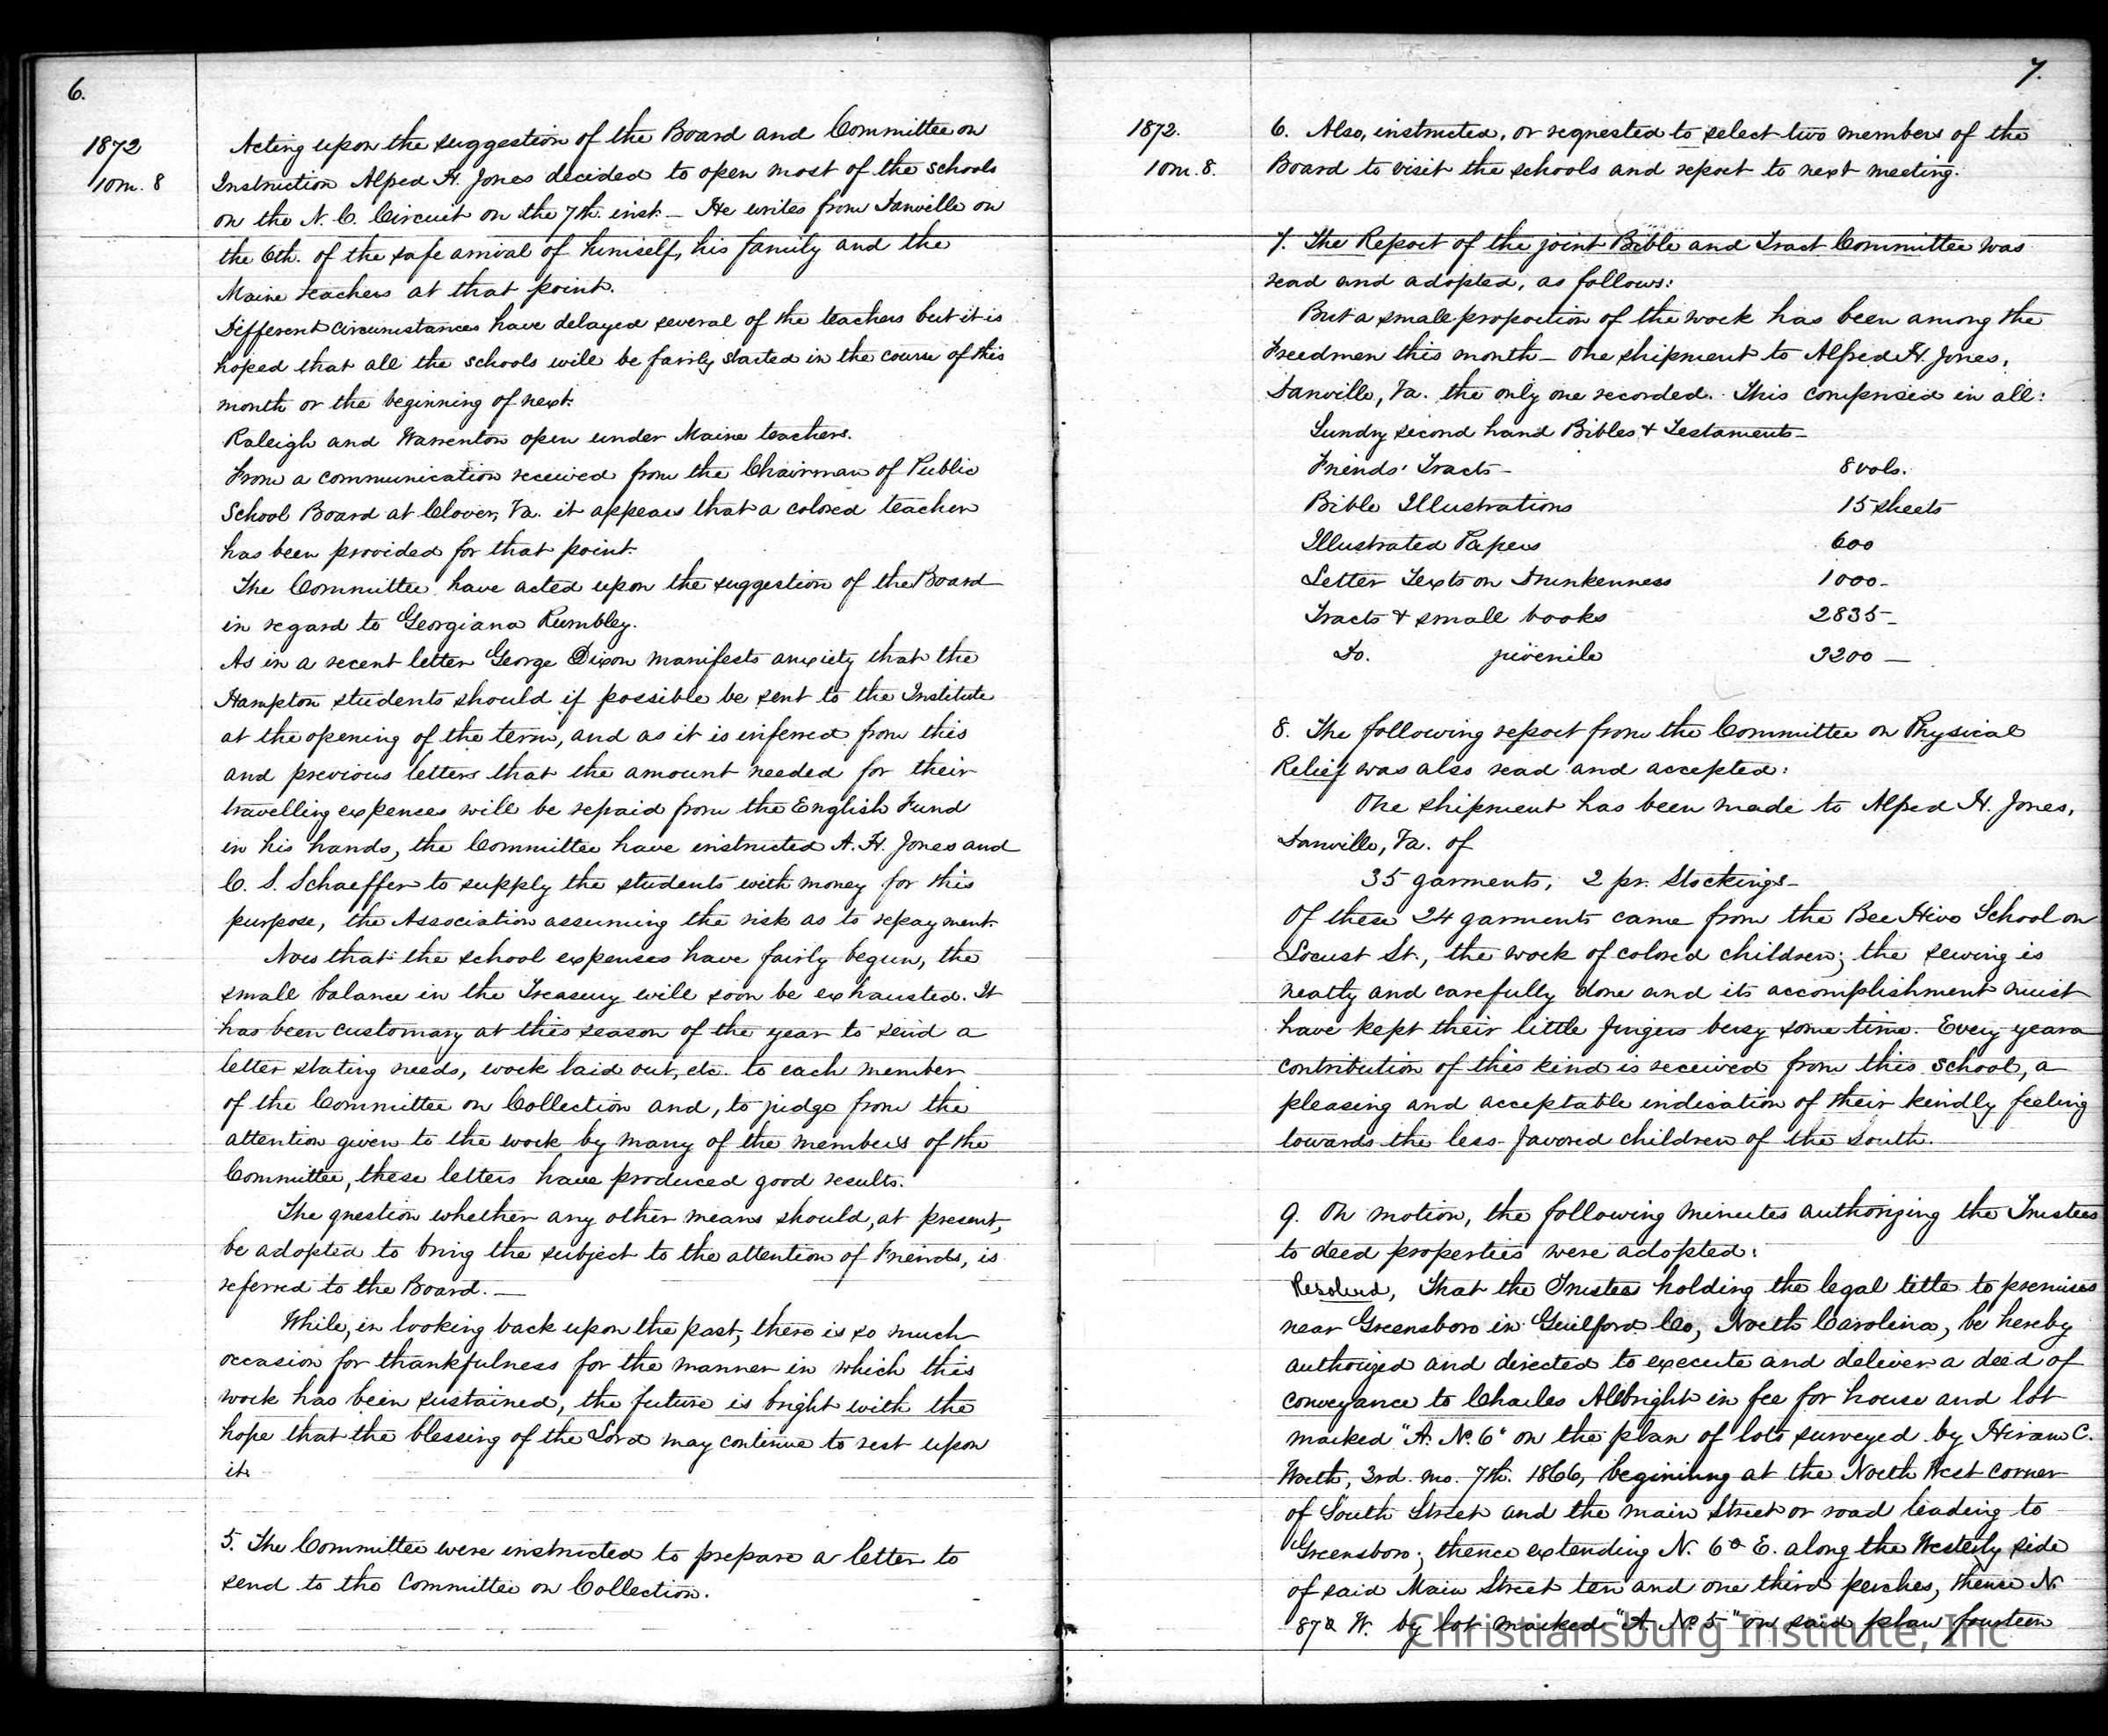 6.
1872
10m. 8
Acting upon the suggestion of the Board and Committee on
Instruction Alfred H. Jones decided to open most of the schools
on the N. C. Circuit on the 7th. inst. — He writes from Danville on
the 6th. of the safe arrival of himself, his family and the
Maine teachers at that point.
Different circumstances have delayed several of the teachers but it is
hoped that all the schools will be fairly started in the course of this
month or the beginning of next.
Raleigh and Warrenton open under Maine teachers.
From a communication received from the Chairman of Public
School Board at Clover, Va. it appears that a colored teacher
has been provided for that point.
The Committee have acted upon the suggestion of the Board
in regard to Georgiana Rumbley.
As in a recent letter George Dixon manifests anxiety that the
Hampton students should if possible be sent to the Institute
at the opening of the term, and as it is inferred from this
and previous letters that the amount needed for their
travelling expences will be repaid from the English Fund
in his hands, the Committee have instructed A. H. Jones and
C. S. Schaeffer to supply the students with money for this
purpose, the Association assuming the risk as to repayment.
Now that the school expenses have fairly begun, the
small balance in the Treasury will soon be exhausted. It
has been customary at this season of the year to send a
letter stating needs, work laid out, etc. to each member
of the Committee on Collection and, to judge from the
attention given to the work by many of the members of the
Committee, these letters have produced good results.
The question whether any other means should, at present,
be adopted to bring the subject to the attention of Friends, is
referred to the Board. —
While, in looking back upon the past, there is so much
occasion for thankfulness for the manner in which this
work has been sustained, the future is bright with the
hope that the blessing of the Lord may continue to rest upon
it.
5. The Committee were instructed to prepare a letter to
send to the Committee on Collection.
7.
1872.
10m. 8.
6. Also, instructed, or requested to select two members of the
Board to visit the schools and report to next meeting.
7. The Report of the joint Bible and Tract Committee was
read and adopted, as follows:
But a small proportion of the work has been among the
Freedmen this month — One shipment to Alfred H. Jones,
Danville, Va. the only one recorded. This comprised in all:
Sundry second hand Bibles & Testaments —
Friends' Tracts — 8 vols.
Bible Illustrations 15 sheets
Illustrated Papers 600
Letter Texts on Drunkenness 1000 —
Tracts & small books 2835 —
Do. juvenile 3200 —
8. The following report from the Committee on Physical
Relief was also read and accepted:
One shipment has been made to Alfred H. Jones,
Danville, Va. of
35 garments, 2 pr. Stockings —
Of these 24 garments came from the Bee Hive School on
Locust St., the work of colored children; the sewing is
neatly and carefully done and its accomplishment must
have kept their little fingers busy some time. Every year a
contribution of this kind is received from this school, a
pleasing and acceptable indication of their kindly feeling
towards the less-favored children of the South.
9. On motion, the following minutes authorizing the Trustees
to deed properties were adopted:
Resolved, That the Trustees holding the legal title to premises
near Greensboro in Guilford Co, North Carolina, be hereby
authorized and directed to execute and deliver a deed of
conveyance to Charles Albright in fee for house and lot
marked "A. No. 6" on the plan of lots surveyed by Hiram C.
Worth, 3rd. mo. 7th. 1866, begining at the North West corner
of South Street and the main Street or road leading to
Greensboro; thence extending N. 6° E. along the Westerly side
of said Main Street ten and one third perches, thence N.
87° W. by lot marked "A. No. 5" on said plan fourteen
Christiansburg Institute, Inc